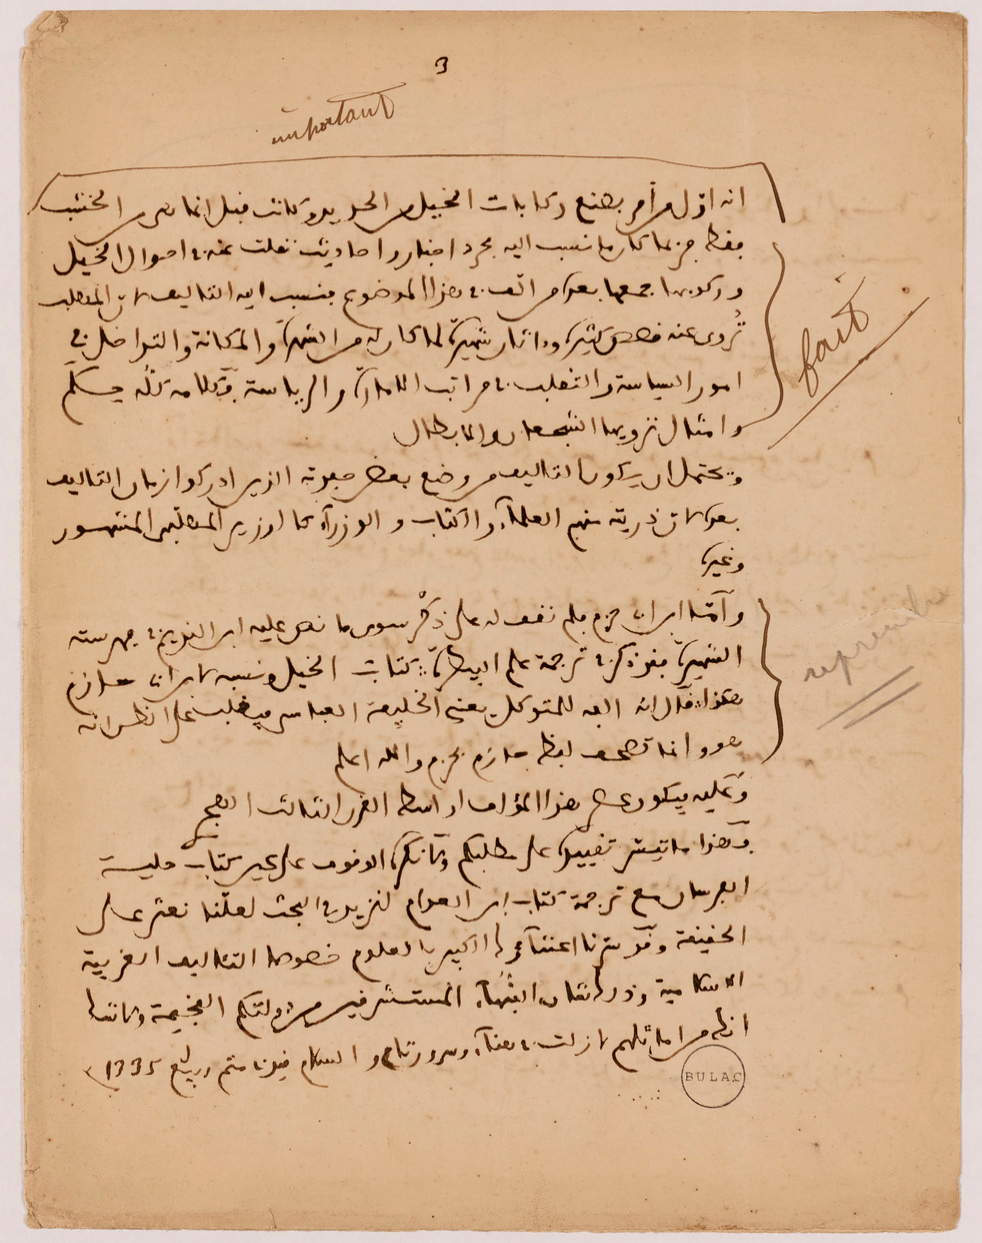 3
important
انه اول من أمر بصنع ركابات الخيل من الحديد وكانت قبل انما هي من الخشب
فيظهر جزما كان ما نسب اليه مجرد اخبار واحاديث نقلت عنه في احوال الخيل
وركوبها جمعها بعد من الف في هذا الموضوع فنسب اليه التاليف لان المهلب
تُروى عنه قصص كثيرة وءاثار شهيرة لما كان له من الشهرة والمكانة والتواصل في
امور السياسة والتغلب في مراتب الامارة والرياسة فكلامه كلّه حِكَم
وامثال ترويها الشجعان والابطال
fait
ويحتمل ان يكون التاليف من وضع بعض حفدته الذين ادركوا زمان التاليف
بعد لان ذريته منهم العلمآء والكتاب والوزرآء كالوزير المهلبي المشهور
وغيره
وأمّا ابن حزم فلم نقف له على ذِكْر سوى ما نص عليه ابن النديم في فهرسته
الشهيرة فقد ذكر في ترجمة علم البيطرة كتاب الخيل ونسبه لابن حازم
هكذا قال انه الفه للمتوكل يعني الخليفة العباسي فيغلب على الظن انه
هو وانما تصحف لفظ حازم بحزم والله اعلم
reprendre
وعليه فيكون عصر هذا المؤلف اواسط القرن الثالث الهجري
وهذا ما تيسر تقييده على مطلبكم ولا نكره الوقوف على عين كتاب حلية
الفرسان مع ترجمة كتاب ابن العوام لنزيد في البحث لعلّنا نعثر على
الحقيقة وقد سرنا اعتنآءكم الكبير بالعلوم خصوصا التئاليف العربية
الاسلامية وذلك شان النبهآء المستشرفين من دولتكم الفخيمة ولا شك
انك من امثلهم لا زلت في هنآء وسرور تام والسلام في متم ربيع 1335
BULAC